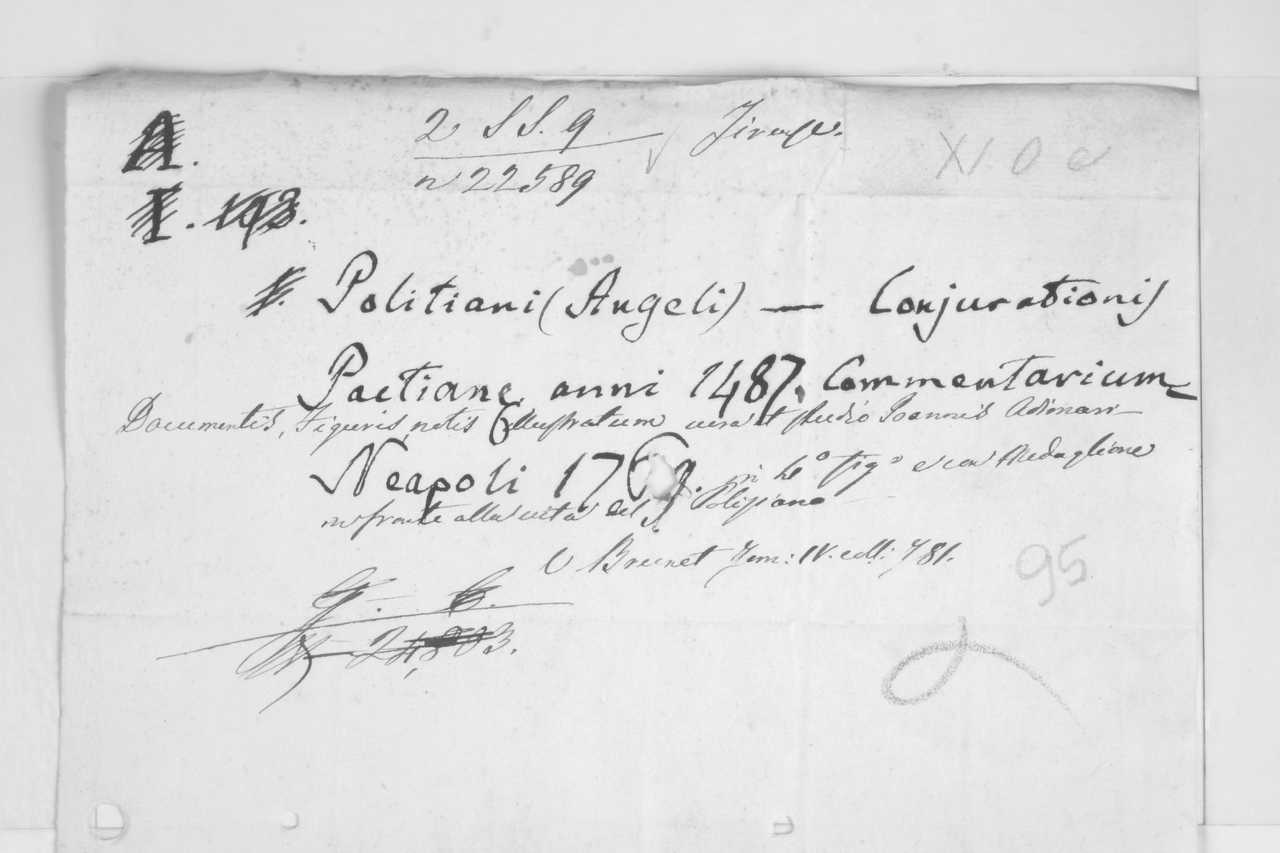 A.
2 SS. 9 Firenze.
XI O c
n 22589
I. 193.
Politiani (Angeli) — Conjurationis
Pactiane anni 1487. Commentarium
Documentis, Figuris, notis illustratum cura et studio Joannis Adimari
Neapoli 1769. in 4º figº e con Medaglione
in fronte alla vita del Poliziano
V Brunet Tom: IV. coll: 781.
95
G. C.
24,803.